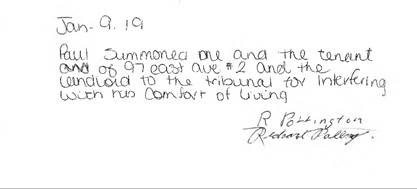 Jan. 9. 19
Paul Summoned me and the tenant
and of 97 east ave #2 and the
landlord to the tribunal for interfering
with his Comfort of Living
R Pottington
Richard